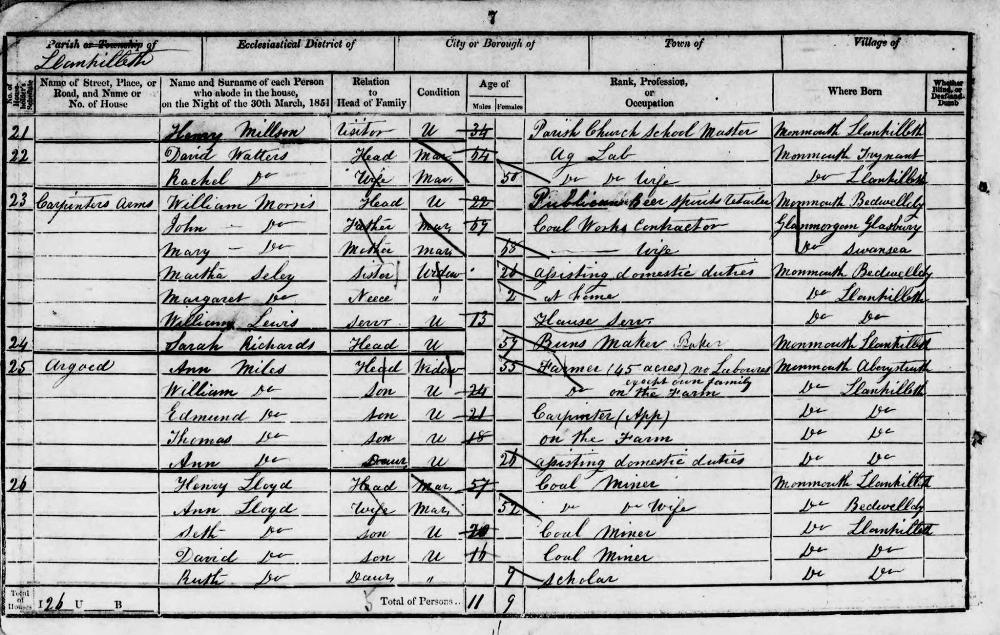 7
Parish or Township of Ecclesiastical District of City or Borough of Town of Village of
Llanhilleth
No. of House-holder's Schedule Name of Street, Place, or Road, and Name or No. of House Name and Surname of each Person who abode in the house, on the Night of the 30th March, 1851 Relation to Head of Family Condition Age of Males Females Rank, Profession, or Occupation Where Born Whether Blind, or Deaf-and-Dumb
21 Henry Millson Visitor U 34 Parish Church School Master Monmouth Llanhilleth
22 David Watters Head Mar 54 Ag Lab Monmouth Trynant
Rachel Do Wife Mar 50 Do Do Wife Do Llanhilleth
23 Carpinters Arms William Morris Head U 22 Publican Beer Spirits Retailer Monmouth Bedwellty
John - Do Father Mar 67 Coal Works Contractor Glanmorgan Glasbury
Mary - Do Mother Mar 68 Wife Do Swansea
Martha Seley Sister Widow 26 Assisting domestic duties Monmouth Bedwellty
Margaret Do Neece " 2 at home Do Llanhilleth
William Lewis Servr U 13 House Serv. Do Do
24 Sarah Richards Head U 59 Buns Maker Baker Monmouth Llanhilleth
25 Argoed Ann Miles Head Widow 55 Farmer (45 acres) no Laboures Monmouth Aberystruth
except own family
William Do Son U 24 Do on the Farm Do Llanhilleth
Edmund Do Son U 21 Carpinter (App) Do Do
Thomas Do Son U 18 on the Farm Do Do
Ann Do Daur U 26 Assisting domestic duties Do Do
26 Henry Lloyd Head Mar 57 Coal Miner Monmouth Llanhilleth
Ann Lloyd Wife Mar 52 Do Do Wife Do Bedwellty
Seth Do Son U 20 Coal Miner Do Llanhilleth
David Do Son U 16 Coal Miner Do Do
Ruth Do Daur " 9 Scholar Do Do
Total of Houses I 26 U B Total of Persons.. 11 9